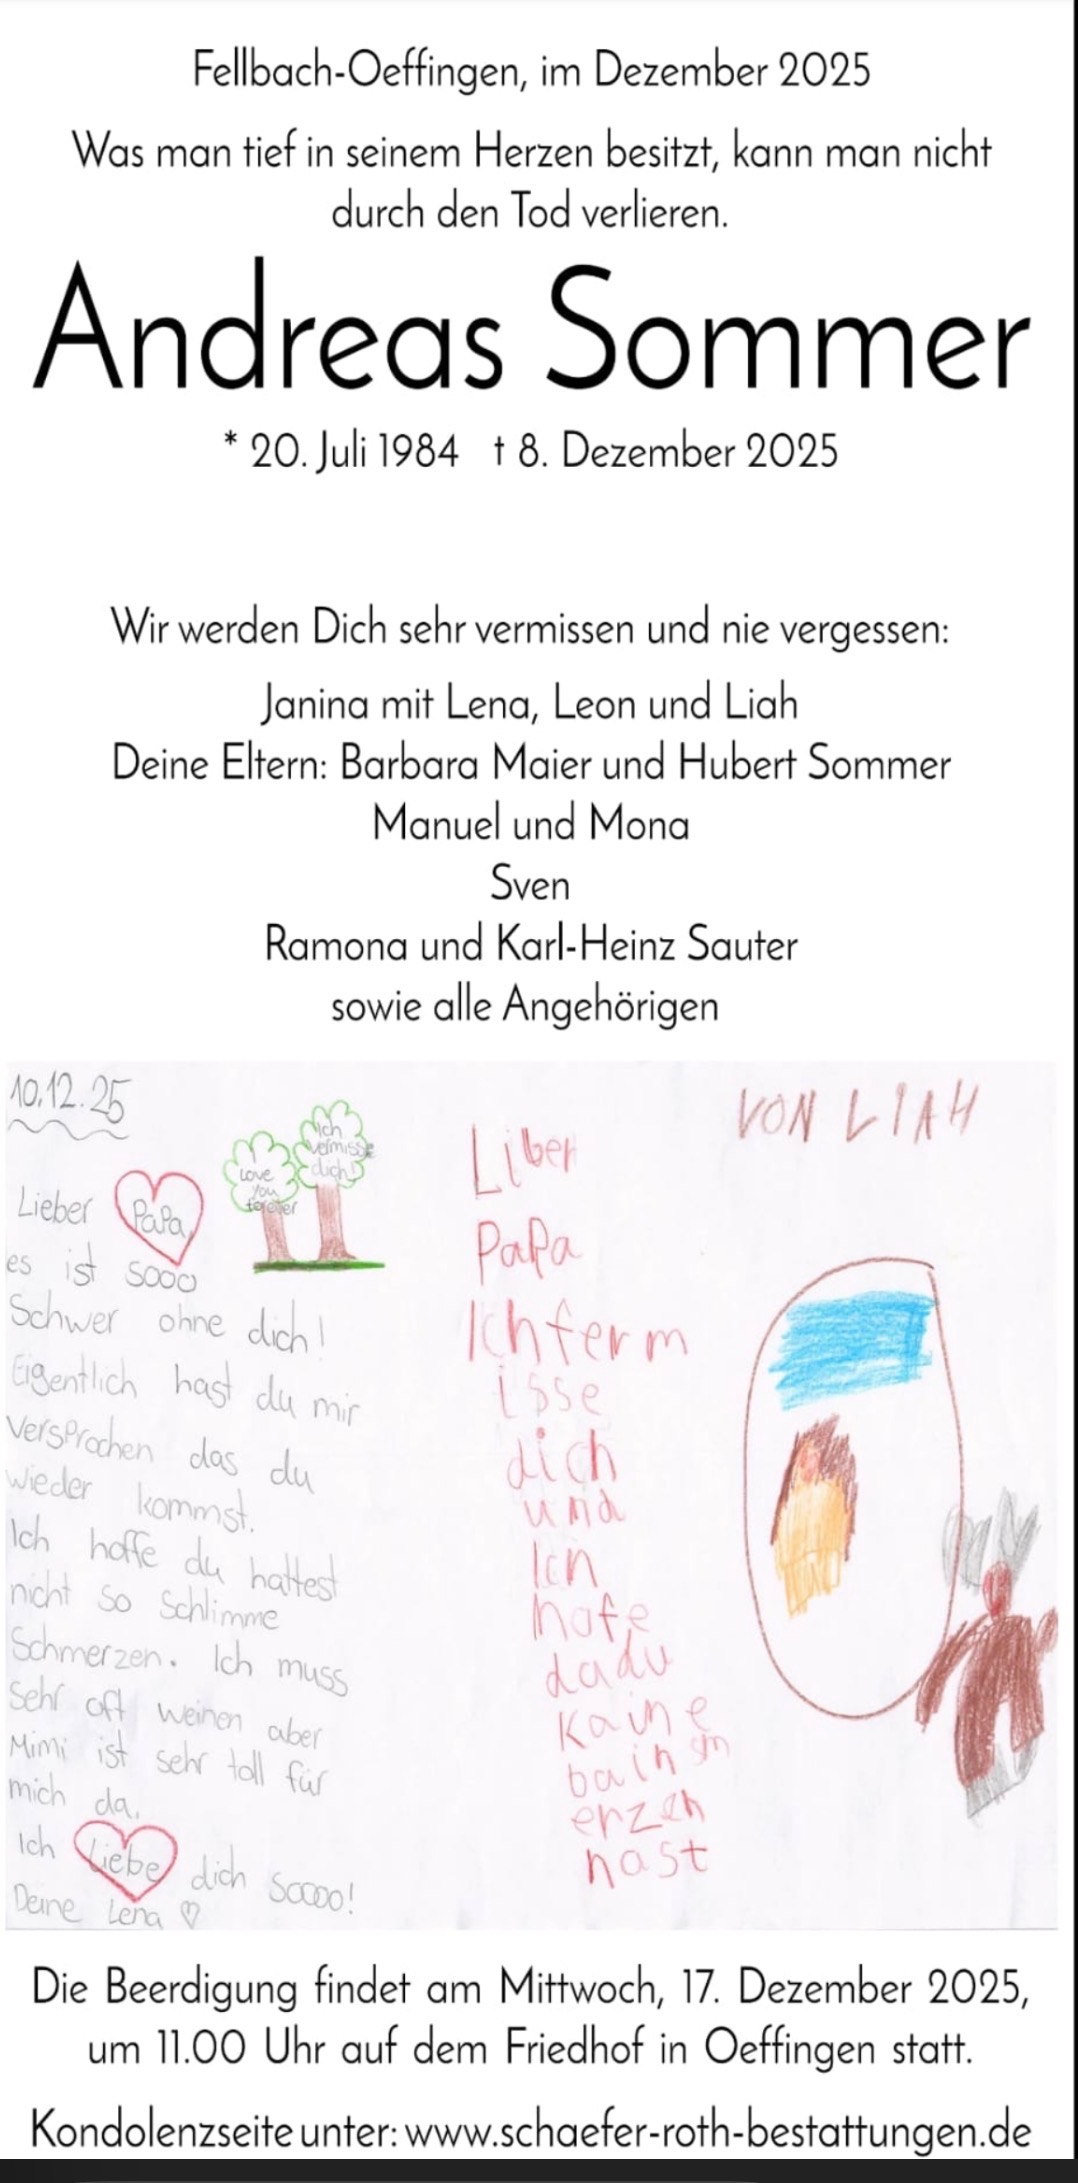 Fellbach-Oeffingen, im Dezember 2025
Was man tief in seinem Herzen besitzt, kann man nicht
durch den Tod verlieren.
Andreas Sommer
* 20. Juli 1984 † 8. Dezember 2025
Wir werden Dich sehr vermissen und nie vergessen:
Janina mit Lena, Leon und Liah
Deine Eltern: Barbara Maier und Hubert Sommer
Manuel und Mona
Sven
Ramona und Karl-Heinz Sauter
sowie alle Angehörigen
10.12.25
Lieber Papa,
es ist sooo
Schwer ohne dich!
Eigentlich hast du mir
versprochen das du
wieder kommst.
Ich hoffe du hattest
nicht so schlimme
Schmerzen. Ich muss
sehr oft weinen aber
Mimi ist sehr toll für
mich da.
Ich Liebe dich soooo!
Deine Lena ♡
Love
you
forever
Ich
vermisse
dich!
Liber
Papa
Ich ferm
isse
dich
und
Ich
hofe
dadu
kaine
bain sm
erzen
hast
VON LIAH
Die Beerdigung findet am Mittwoch, 17. Dezember 2025,
um 11.00 Uhr auf dem Friedhof in Oeffingen statt.
Kondolenzseite unter: www.schaefer-roth-bestattungen.de